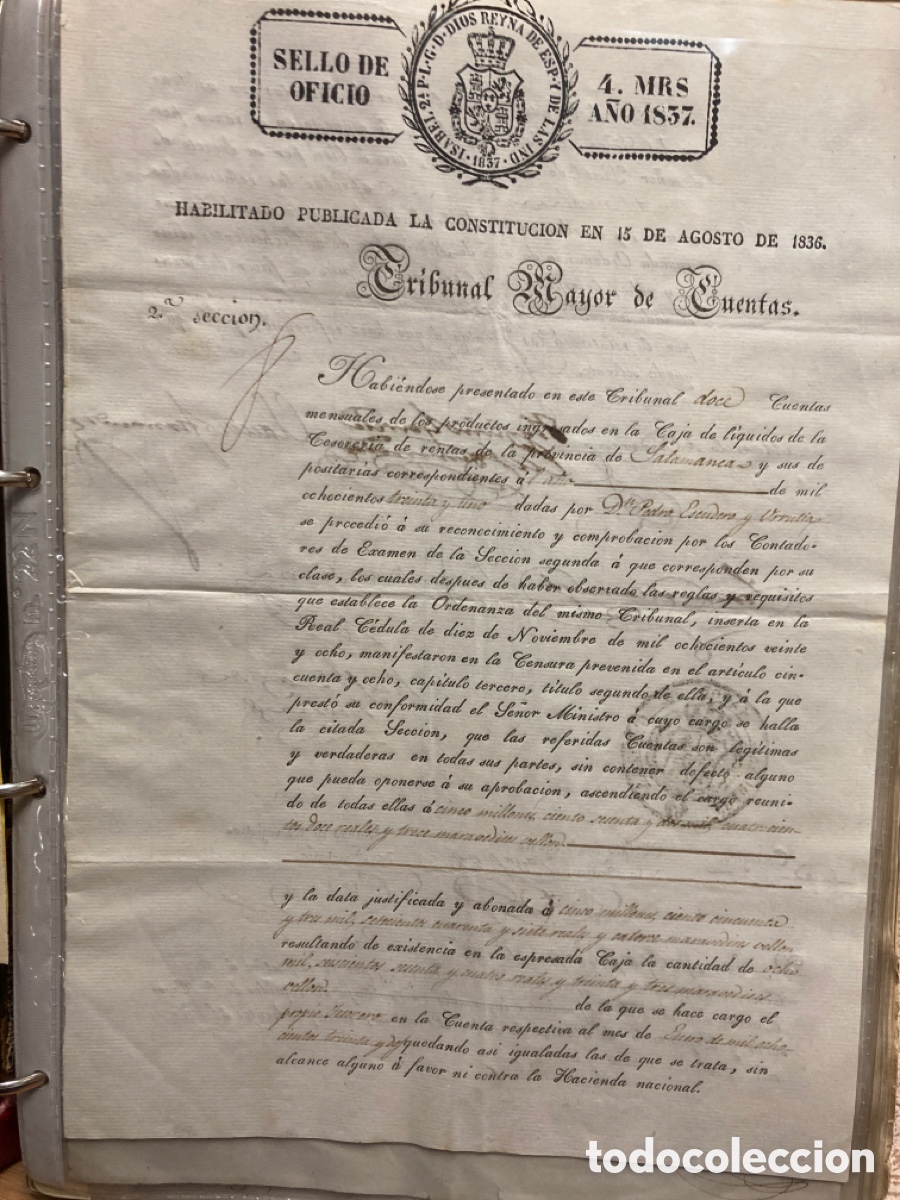 SELLO DE
OFICIO
ISABEL 2ª P. L. G. D. DIOS REYNA DE ESP. Y DE LAS IND
· 1837 ·
4. MRS
AÑO 1837.
HABILITADO PUBLICADA LA CONSTITUCION EN 15 DE AGOSTO DE 1836.
Tribunal Mayor de Cuentas.
2.ª Seccion.
Habiéndose presentado en este Tribunal doce Cuentas
mensuales de los productos ingresados en la Caja de líquidos de la
Tesoreria de rentas de la provincia de Salamanca y sus de
positarías correspondientes á l año de mil
ochocientos treinta y uno dadas por Dn. Pedro Escudero y Urrutia
se procedió á su reconocimiento y comprobacion por los Contado-
res de Examen de la Seccion segunda á que corresponden por su
clase, los cuales despues de haber observado las reglas y requisitos
que establece la Ordenanza del mismo Tribunal, inserta en la
Real Cédula de diez de Noviembre de mil ochocientos veinte
y ocho, manifestaron en la Censura prevenida en el artículo cin-
cuenta y ocho, capítulo tercero, título segundo de ella, y á la que
prestó su conformidad el Señor Ministro á cuyo cargo se halla
la citada Seccion, que las referidas Cuentas son legítimas
y verdaderas en todas sus partes, sin contener defecto alguno
que pueda oponerse á su aprobacion, ascendiendo el cargo reuni-
do de todas ellas á cinco millones, ciento sesenta y dos mil, cuatrocien-
tos doce reales, y trece maravedises vellon
y la data justificada y abonada á cinco millones, ciento cincuenta
y tres mil, setecientos cuarenta y siete reales y catorce maravedises vellon
resultando de existencia en la espresada Caja la cantidad de ocho
mil, seiscientos sesenta y cuatro reales, y treinta y tres maravedises
vellon. de la que se hace cargo el
propio Tesorero en la Cuenta respectiva al mes de Enero de mil ocho-
cientos treinta y dos quedando asi igualadas las de que se trata, sin
alcance alguno á favor ni contra la Hacienda nacional.
todocoleccion